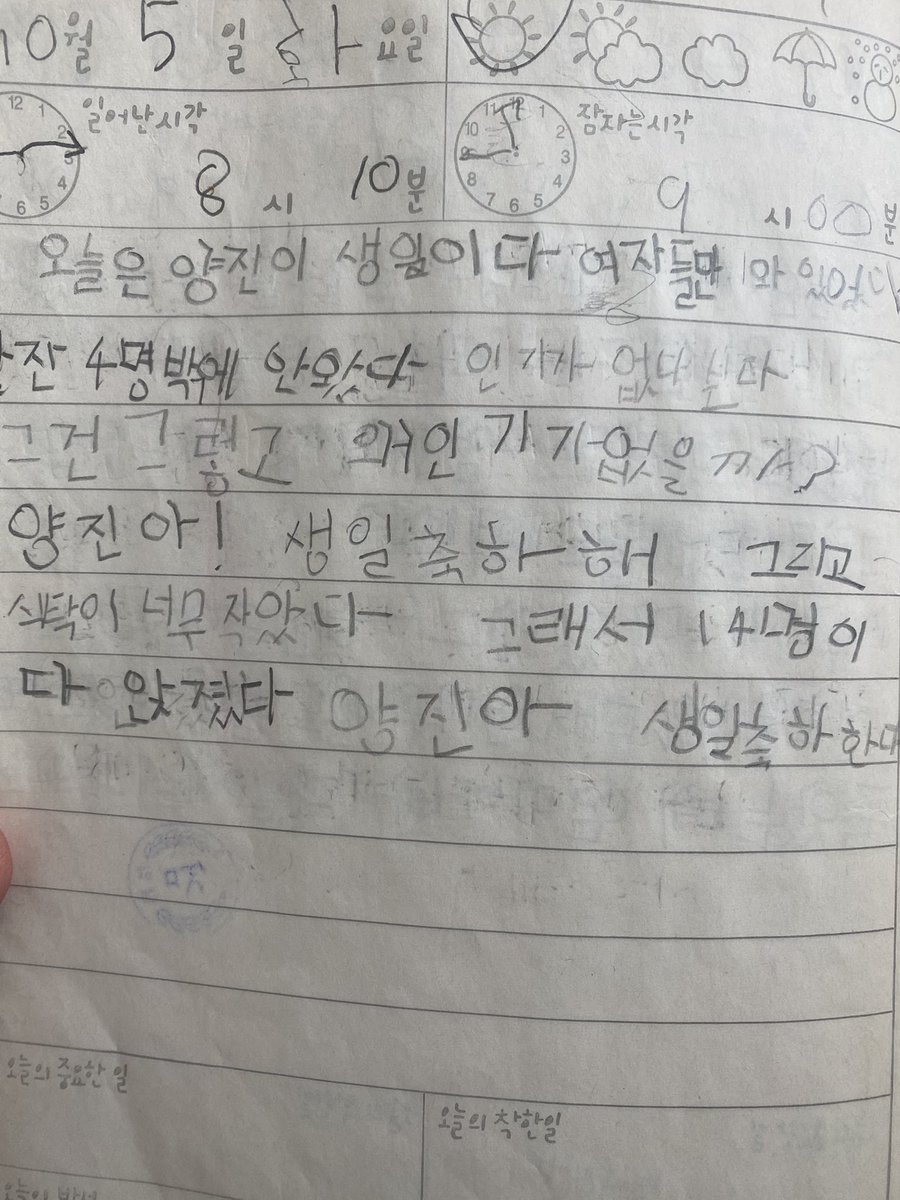 10월 5일 화요일
일어난시각 잠자는시각
8시 10분 9시 00분
오늘은 양진이 생일이다 여자들만 와 있었다
잔 4명밖에 안왔다 인기가 없다
그건 그렇고 왜인기가없을까?
양진아! 생일축하해 그리고
식탁이 너무 작았다 그래서 14명이
다 앉졌다 양진아 생일축하한다
오늘의 중요한 일
오늘의 착한일